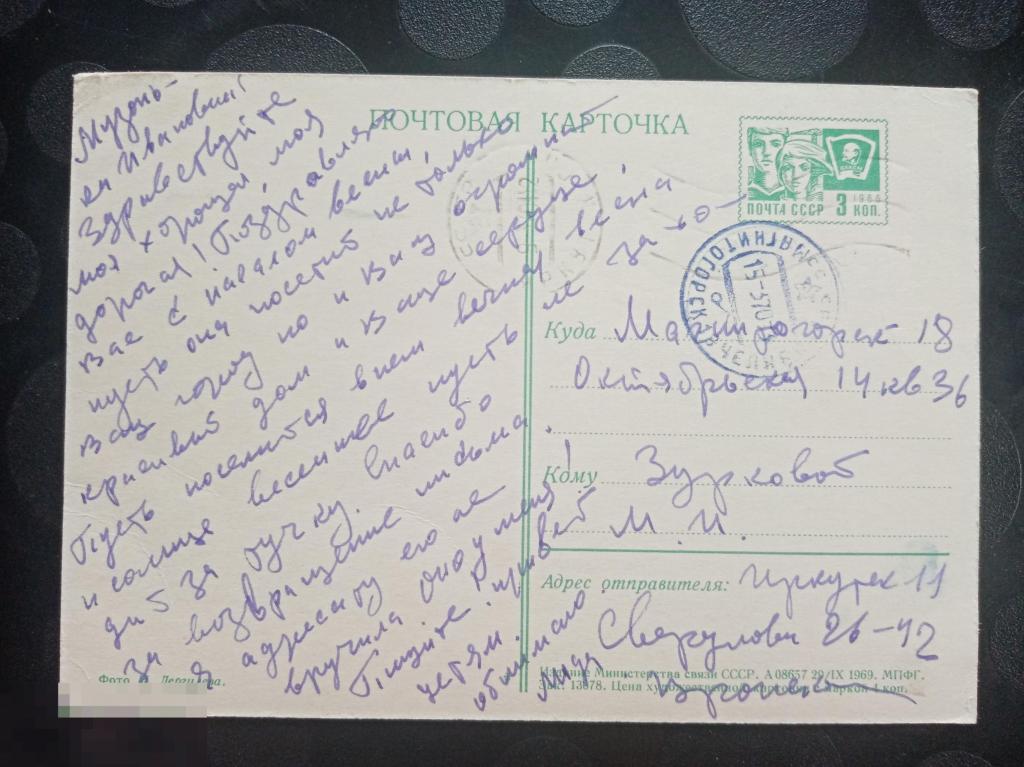 ПОЧТОВАЯ КАРТОЧКА
ПОЧТА СССР 3 КОП.
1966
МАГНИТОГОРСК ЧЕЛЯБ
15-370
Ивановна!
Здравствуйте
моя хорошая, моя
дорогая! Поздравляю
Вас с началом весны,
пусть она посетит не только
Ваш город но и Ваш огромный
красивый дом и Ваше сердце!
Пусть поселится в нем вечная весна
и солнце весеннее пусть
за ручку. Спасибо
за возвращение письма.
Я адресату его не
вручила. Оно у меня!
Пишите. Привет
детям.
обнимаю.
Лида
Куда Магнитогорск 18
Октябрьская 14 кв 36
Кому Зурковой
М. И.
Адрес отправителя: Иркутск 11
Свердлова 26-42
Фото
Издание Министерства связи СССР. А 08657 29/IX 1969. МПФГ.
Зак. 13878. Цена художественной карточки с маркой 4 коп.